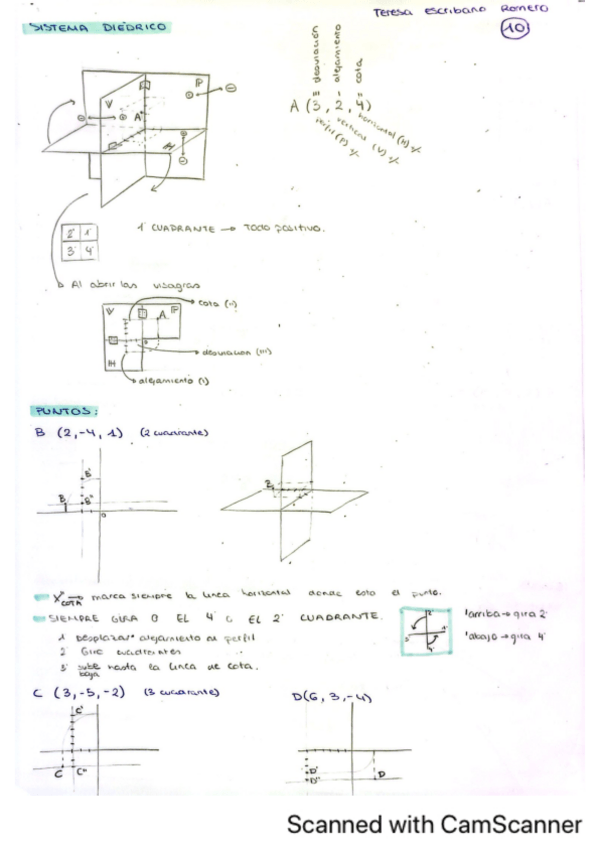 Teresa Escribano Romero
10
SISTEMA DIÉDRICO
''' desviación
' alejamiento
'' cota
A (3, 2, 4)
perfil (P)
vertical (V)
horizontal (H)
P
V
A
H
2' 1'
3' 4'
1' CUADRANTE → TODO POSITIVO.
Al abrir las visagras
V
P
A
H
cota ('')
desviación (''')
alejamiento (')
PUNTOS:
B (2, -4, 1) (2 cuadrante)
B'
B
B''
B
COTA → marca siempre la línea horizontal donde esta el punto.
SIEMPRE GIRA O EL 4' o EL 2' CUADRANTE.
1' Desplazar alejamiento al perfil
2' Giro cuadrantes
3' sube hasta la línea de cota.
baja
2'
1'
3'
4'
'arriba → gira 2'
'abajo → gira 4'
C (3, -5, -2) (3 cuadrante)
D(6, 3, -4)
C'
C
C''
D'
D''
D
Scanned with CamScanner